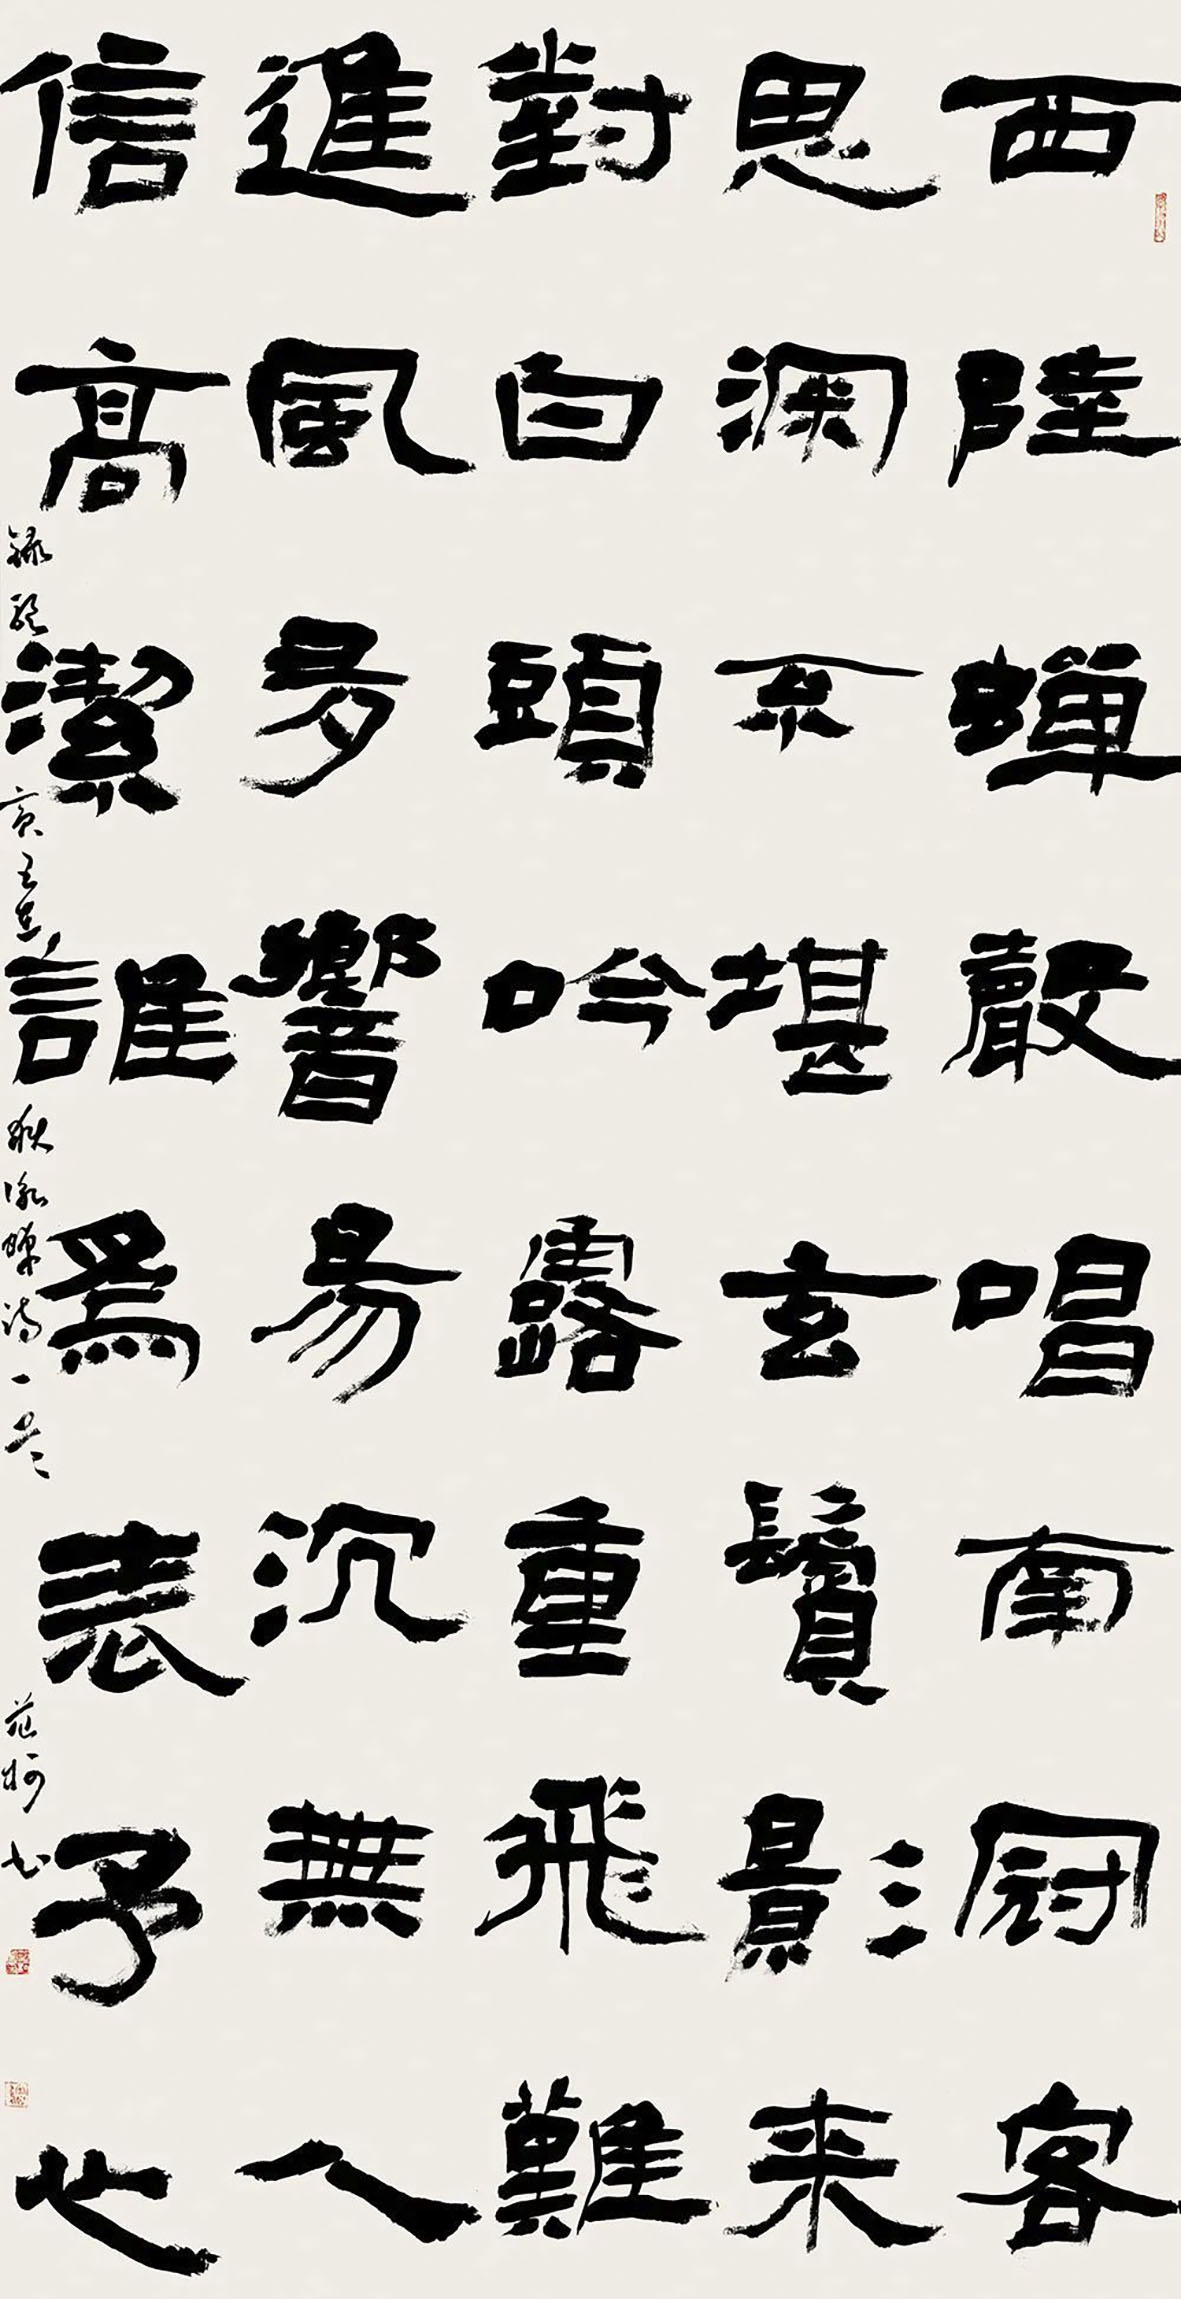 西陸蟬聲唱南冠客
思深不堪玄鬢影来
對白頭吟露重飛難
進風多響易沉無人
信高潔誰爲表予心
録駱賓王在獄詠蟬詩一首 范书